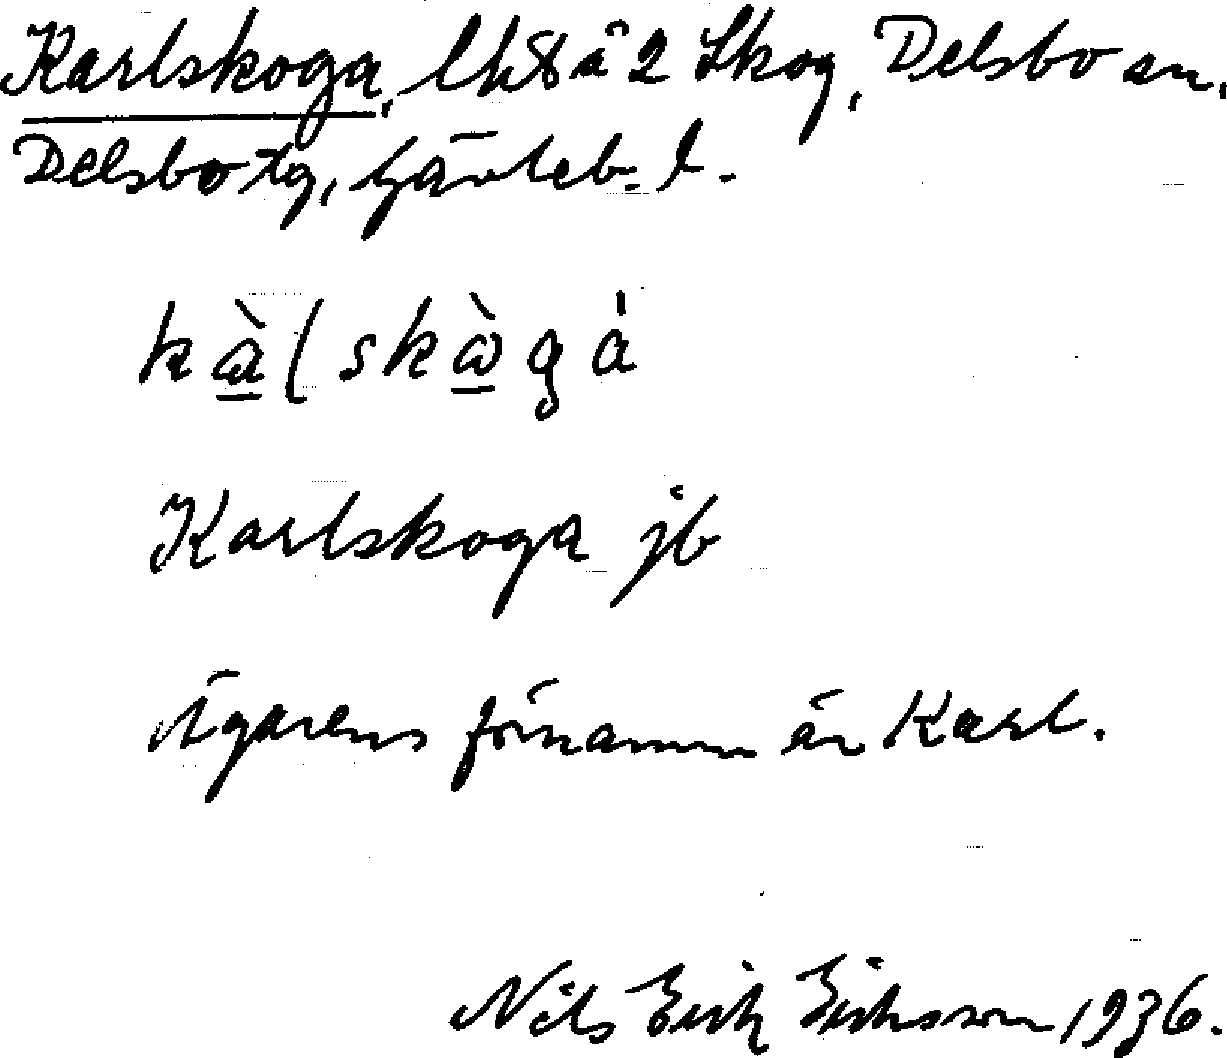 Karlskoga, lht 8 å 2 Skog, Delsbo sn,
Delsbo tg, Gävleb. l.
kàlskògá
Karlskoga jb
Ägarens förnamn är Karl.
Nils Erik Eriksson 1936.